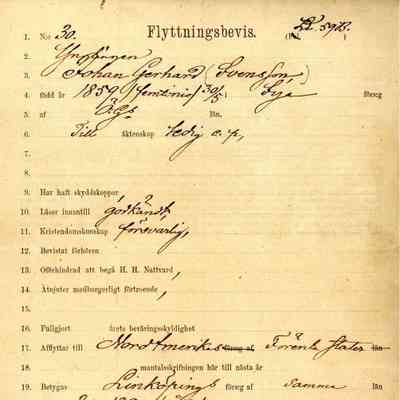 Flyttningsbevis.
1. N:o 30.
2. Ynglingen
3. Johan Gerhard (Svensson)
4. född år 1859 femtinio 30/5 i Sya förs:g
5. af Ö.Gs län.
6. Till äktenskap ledig
7.
8.
9. Har haft skyddskoppor,
10. Läser innantill godkändt,
11. Kristendomskunskap försvarlig,
12. Bevistat förhören
13. Oförhindrad att begå H. H. Nattvard,
14. Åtnjuter medborgerligt förtroende,
15.
16. Fullgjort årets beväringsskyldighet
17. Afflyttar till Nord Amerikas förs:g af Förenta Stater län
18. mantalsskrifningen här till nästa år
19. Betygas Linköpings förs:g af samma län